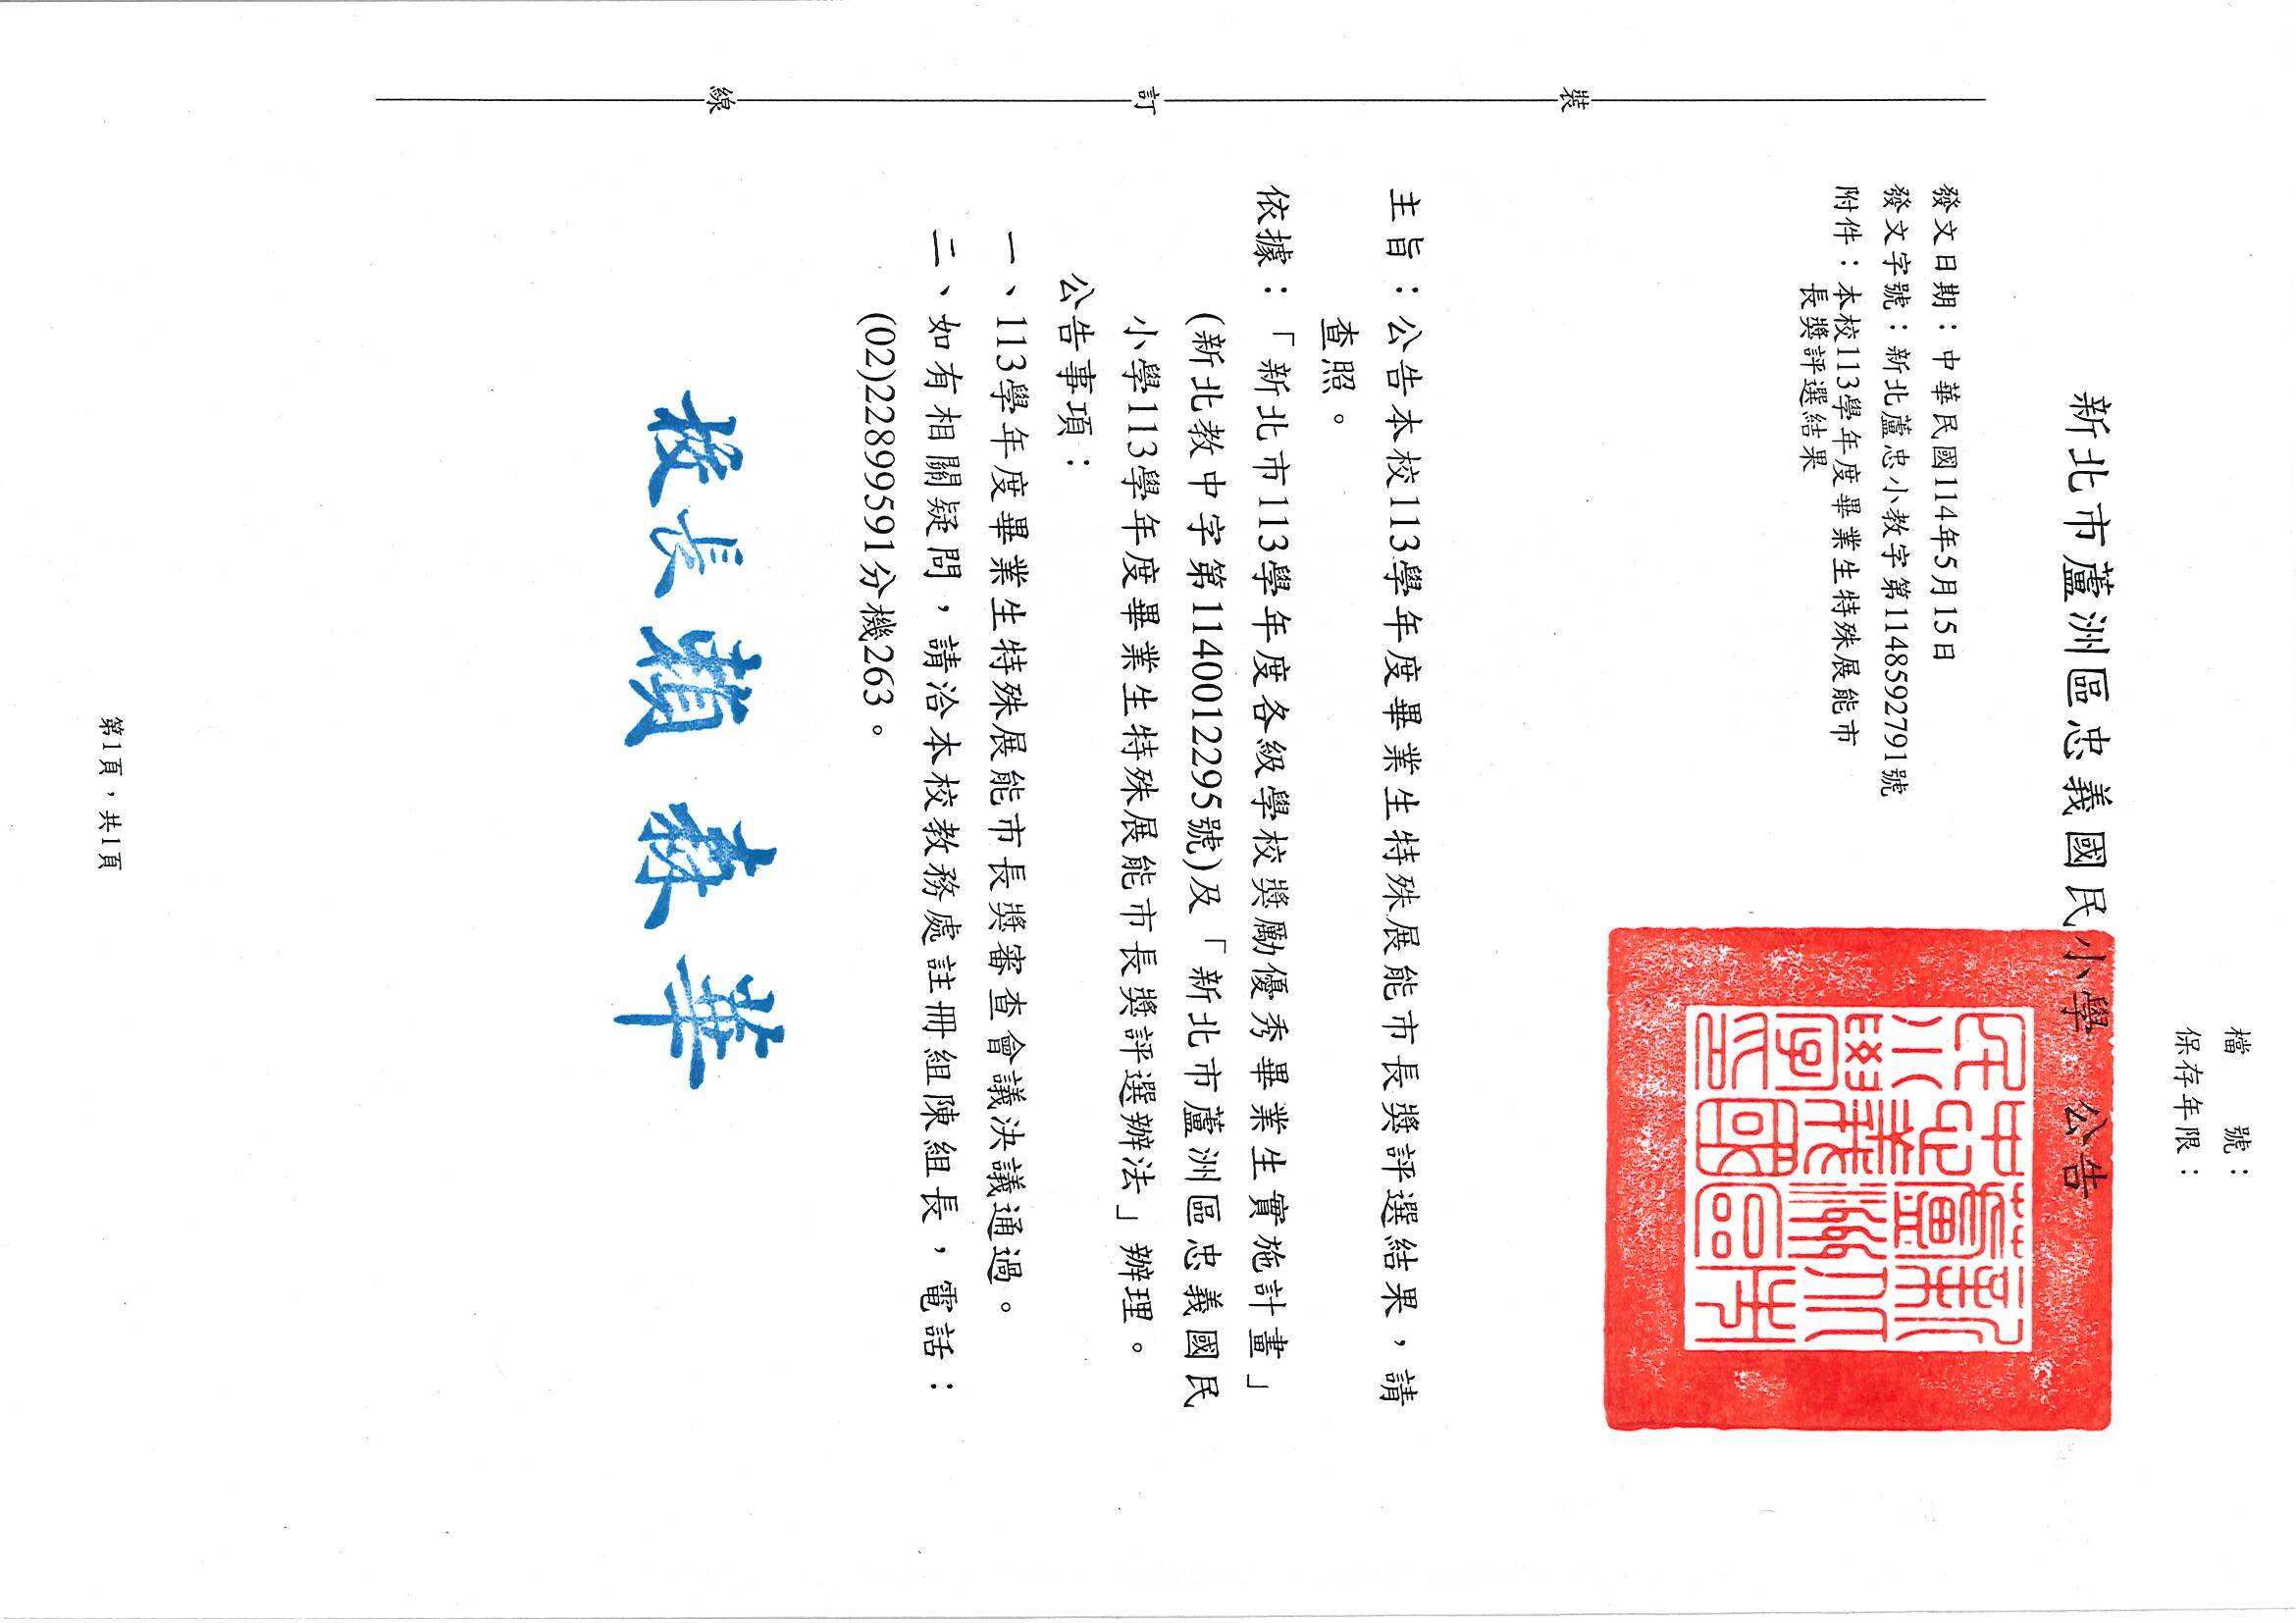 檔　　號：
保存年限：
新北市蘆洲區忠義國民小學　公告
發文日期：中華民國114年5月15日
發文字號：新北蘆忠小教字第1148592791號
附件：本校113學年度畢業生特殊展能市
長獎評選結果
主旨：公告本校113學年度畢業生特殊展能市長獎評選結果，請
查照。
依據：「新北市113學年度各級學校獎勵優秀畢業生實施計畫」
(新北教中字第1140012295號)及「新北市蘆洲區忠義國民
小學113學年度畢業生特殊展能市長獎評選辦法」辦理。
公告事項：
一、113學年度畢業生特殊展能市長獎審查會議決議通過。
二、如有相關疑問，請洽本校教務處註冊組陳組長，電話：
(02)22899591分機263。
校長賴春華
裝
訂
線
第1頁，共1頁